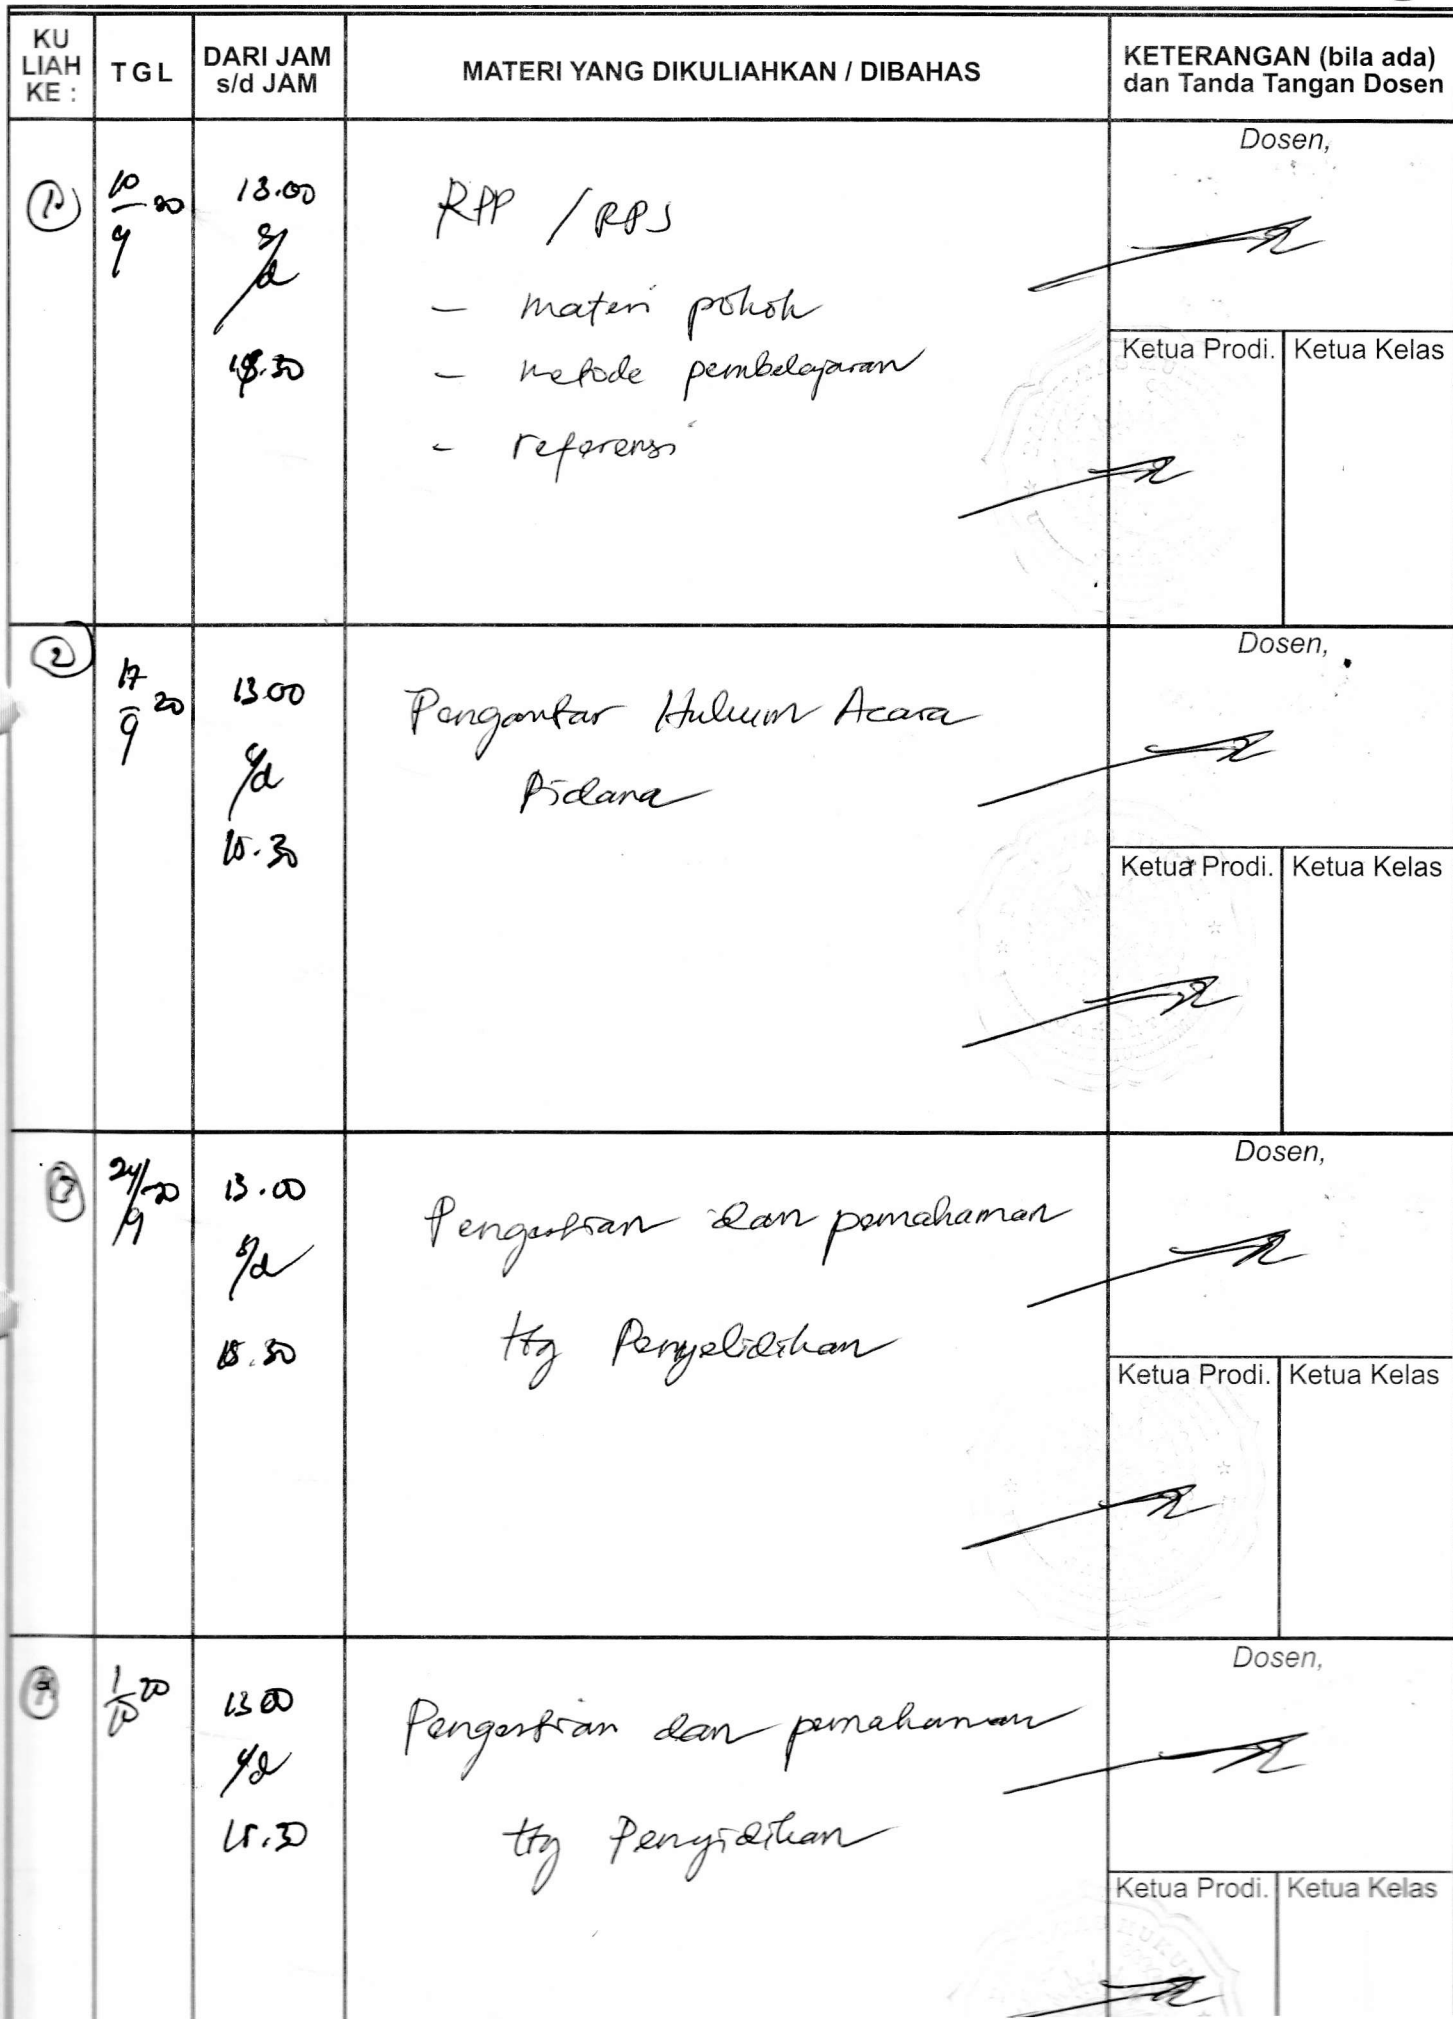 KU
LIAH
KE :
TGL
DARI JAM
s/d JAM
MATERI YANG DIKULIAHKAN / DIBAHAS
KETERANGAN (bila ada)
dan Tanda Tangan Dosen
1.
10/9 20
13.00
s/d
15.30
RPP / RPS
- materi pokok
- metode pembelajaran
- referensi
Dosen,
Ketua Prodi.
Ketua Kelas
2
17/9 20
13.00
s/d
15.30
Pengantar Hukum Acara
Pidana
Dosen,
Ketua Prodi.
Ketua Kelas
3
24/9 20
13.00
s/d
15.30
Pengertian dan pemahaman
ttg Penyelidikan
Dosen,
Ketua Prodi.
Ketua Kelas
1/10 20
13 00
s/d
15.30
Pengertian dan pemahaman
ttg Penyidikan
Dosen,
Ketua Prodi.
Ketua Kelas